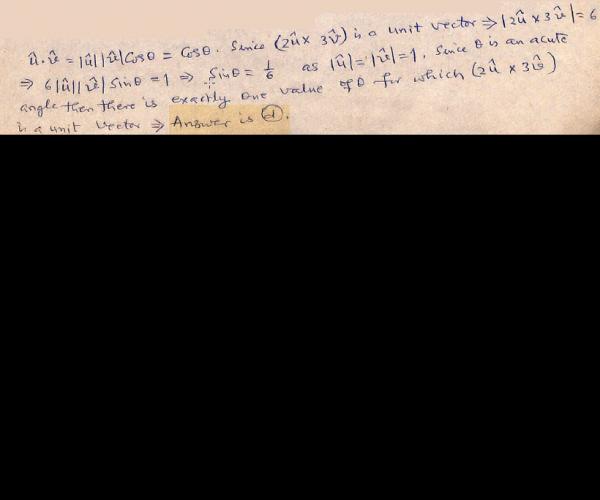 û.v̂ = |û||v̂|Cosθ = Cosθ. Since (2û × 3v̂) is a unit vector ⇒ |2û × 3v̂| = 6
⇒ 6|û||v̂|Sinθ = 1 ⇒ Sinθ = 1/6 as |û| = |v̂| = 1. Since θ is an acute
angle then there is exactly one value of θ for which (2û × 3v̂)
is a unit vector ⇒ Answer is (d).